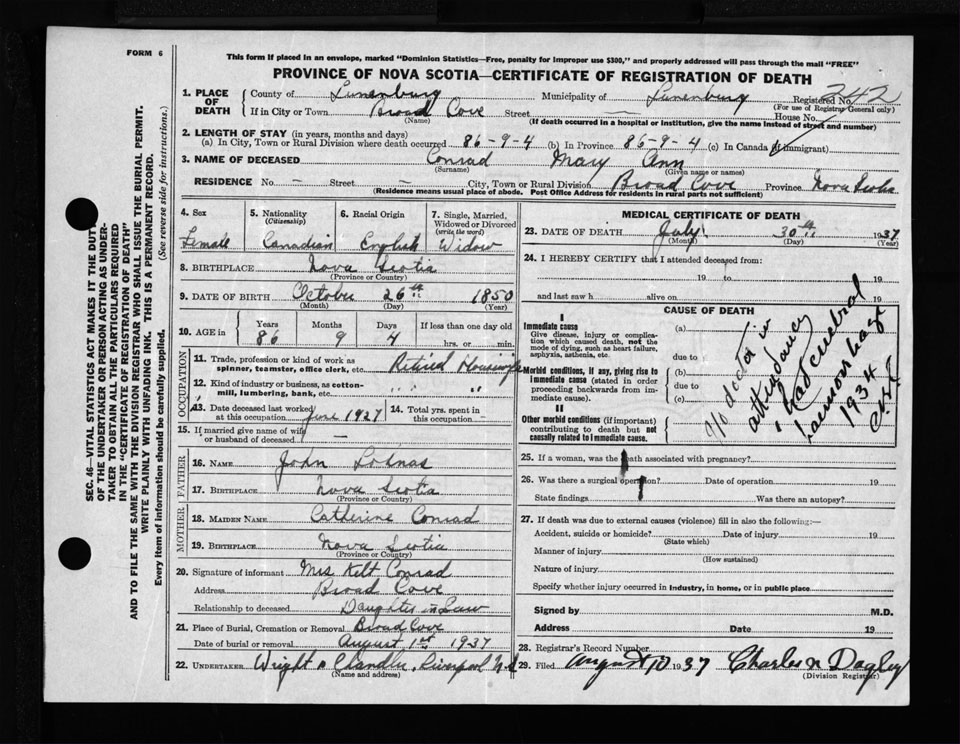 FORM 6
This form if placed in an envelope, marked "Dominion Statistics—Free, penalty for improper use $300," and properly addressed will pass through the mail "FREE"
PROVINCE OF NOVA SCOTIA—CERTIFICATE OF REGISTRATION OF DEATH
SEC. 46—VITAL STATISTICS ACT MAKES IT THE DUTY
OF THE UNDERTAKER OR PERSON ACTING AS UNDER-
TAKER TO OBTAIN ALL THE PARTICULARS REQUIRED
IN THE "CERTIFICATE OF REGISTRATION OF DEATH"
AND TO FILE THE SAME WITH THE DIVISION REGISTRAR WHO SHALL ISSUE THE BURIAL PERMIT.
WRITE PLAINLY WITH UNFADING INK. THIS IS A PERMANENT RECORD.
Every item of information should be carefully supplied. (See reverse side for instructions.)
1. PLACE OF DEATH
County of Lunenburg Municipality of Lunenburg Registered No. 342
(For use of Registrar General only)
If in City or Town Broad Cove Street — House No.
(Name) (If death occurred in a hospital or institution, give the name instead of street and number)
2. LENGTH OF STAY (in years, months and days)
(a) In City, Town or Rural Division where death occurred 86-9-4 (b) In Province 86-9-4 (c) In Canada (if immigrant)
3. NAME OF DECEASED Conrad Mary Ann
(Surname) (Given name or names)
RESIDENCE No. — Street — City, Town or Rural Division Broad Cove Province Nova Scotia
(Residence means usual place of abode. Post Office Address for residents in rural parts not sufficient)
4. Sex 5. Nationality (Citizenship) 6. Racial Origin 7. Single, Married, Widowed or Divorced (write the word)
Female Canadian English Widow
8. BIRTHPLACE Nova Scotia
(Province or Country)
9. DATE OF BIRTH October 26th 1850
(Month) (Day) (Year)
10. AGE in Years Months Days If less than one day old
86 9 4 hrs. or min.
OCCUPATION
11. Trade, profession or kind of work as spinner, teamster, office clerk, etc. Retired Housewife
12. Kind of industry or business, as cotton-mill, lumbering, bank, etc. " "
13. Date deceased last worked at this occupation June 1927 14. Total yrs. spent in this occupation —
15. If married give name of wife or husband of deceased —
FATHER
16. NAME John
17. BIRTHPLACE Nova Scotia
(Province or Country)
MOTHER
18. MAIDEN NAME Catherine Conrad
19. BIRTHPLACE Nova Scotia
(Province or Country)
20. Signature of informant Mrs Kelt Conrad
Address Broad Cove
Relationship to deceased Daughter in Law
21. Place of Burial, Cremation or Removal Broad Cove
Date of burial or removal August 1st 1937
22. UNDERTAKER Wright & Chandler, Liverpool N.S
(Name and address)
MEDICAL CERTIFICATE OF DEATH
23. DATE OF DEATH July 30th 1937
(Month) (Day) (Year)
24. I HEREBY CERTIFY that I attended deceased from:
19 to 19
and last saw h alive on 19
CAUSE OF DEATH
I
Immediate cause
Give disease, injury or complication which caused death, not the mode of dying, such as heart failure, asphyxia, asthenia, etc.
(a)
due to
Morbid conditions, if any, giving rise to immediate cause (stated in order proceeding backwards from immediate cause).
(b)
due to
(c)
II
Other morbid conditions (if important) contributing to death but not causally related to immediate cause.
No doctor in
attendancy
had cerebral
haemorrhage
1934
25. If a woman, was the death associated with pregnancy?
26. Was there a surgical operation? Date of operation 19
State findings Was there an autopsy?
27. If death was due to external causes (violence) fill in also the following:—
Accident, suicide or homicide? Date of injury 19
(State which)
Manner of injury
(How sustained)
Nature of injury
Specify whether injury occurred in industry, in home, or in public place
Signed by M.D.
Address Date 19
28. Registrar's Record Number
29. Filed August 10 1937 Charles N Dagley
(Division Registrar)